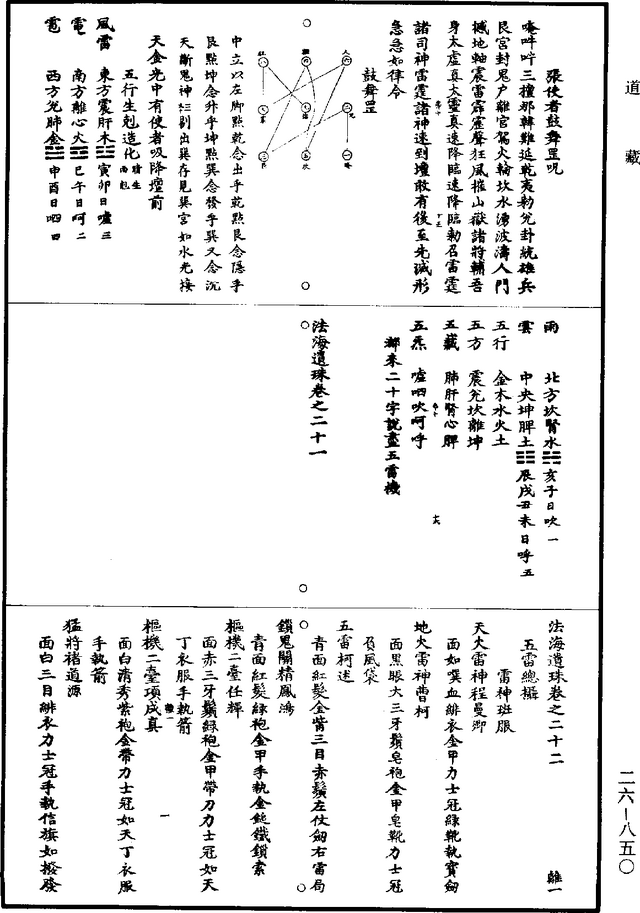 道藏
張使者鼓舞罡呪
唵吽吽三撞那韓難延乾夷勅兊卦統雄兵
艮宮封鬼戶離宮駕火輪坎水湧波濤人門
撼地軸震雷霹靂聲狂風摧山嶽諸將輔吾
身太虛真大靈真速降臨速降臨勅召雷霆
諸司神雷霆諸神速到壇敢有後至先滅形
急急如律令
鼓舞罡
中立以左脚點乾念出乎乾點艮念隱乎
艮點坤念升乎坤點巽念發乎巽又念沉
天斷鬼神仁剔出巽存見巽宮如水光接
天金光中有使者吸降壇前
五行生剋造化
風雷 東方震肝木☳寅卯日噓三
電 南方離心火☲巳午日呵二
雹 西方兊肺金☱申酉日呬四
雨 北方坎腎水☵亥子日吹一
雲 中央坤脾土☷辰戌丑未日呼五
五行 金木水火土
五方 震兊坎離坤
五藏 肺肝腎心脾
五炁 噓呬吹呵呼
都來二十字說盡五雷機
十六
法海遺珠卷之二十一
法海遺珠卷之二十二 離一
五雷總攝
雷神班服
天火雷神程曼卿
面如噀血緋衣金甲力士冠綠靴執寶劒
地火雷神曹柯
面黑眼大三牙鬚皂袍金甲皂靴力士冠
負風袋
五雷柯述
青面紅髮金觜三目赤鬚左仗劒右雷局
鎖鬼關精鳳鴻
青面紅髮綠袍金甲手執金鎚鐵鎖索
樞機二臺任輝
面赤三牙鬚綠袍金甲帶刀力士冠如天
丁衣服手執箭
樞機二臺項成真
一
面白清秀紫袍金帶力士冠如天丁衣服
手執箭
猛將禇道源
面白三目緋衣力士冠手執信旗如撥發
二六—八五〇